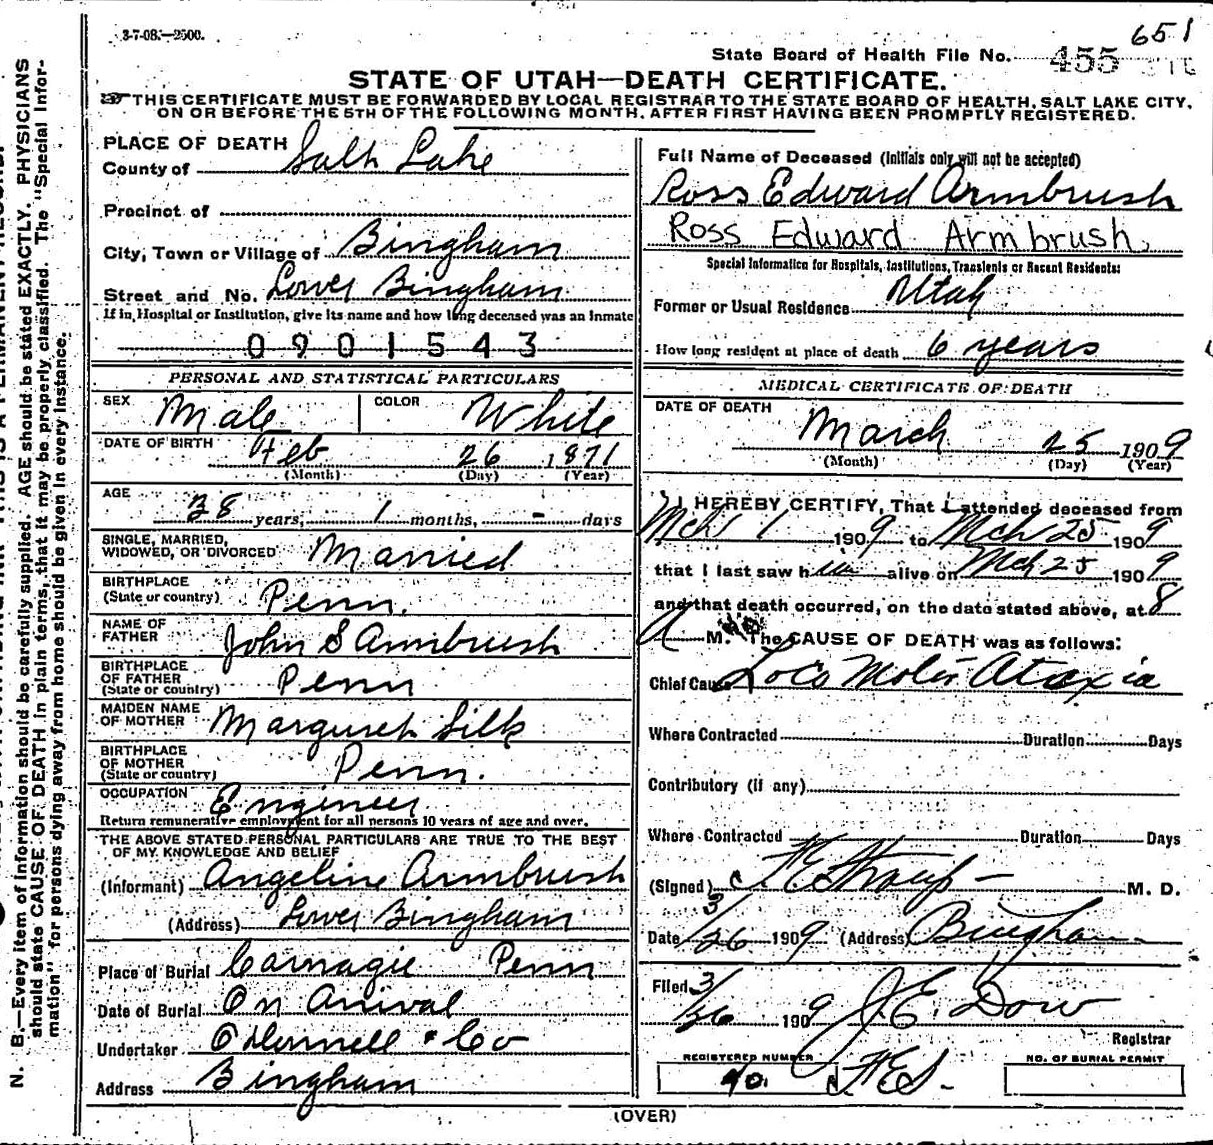 3-7-08.—2500.
651
State Board of Health File No. 455
STATE OF UTAH—DEATH CERTIFICATE.
THIS CERTIFICATE MUST BE FORWARDED BY LOCAL REGISTRAR TO THE STATE BOARD OF HEALTH, SALT LAKE CITY,
ON OR BEFORE THE 5TH OF THE FOLLOWING MONTH, AFTER FIRST HAVING BEEN PROMPTLY REGISTERED.
PLACE OF DEATH
County of Salt Lake
Precinct of
City, Town or Village of Bingham
Street and No. Lower Bingham
If in Hospital or Institution, give its name and how long deceased was an Inmate
0901543
PERSONAL AND STATISTICAL PARTICULARS
SEX Male COLOR White
DATE OF BIRTH Feb 26 1871
(Month) (Day) (Year)
AGE 38 years, 1 months, - days
SINGLE, MARRIED,
WIDOWED, OR DIVORCED Married
BIRTHPLACE
(State or country) Penn.
NAME OF
FATHER John S Armbrush
BIRTHPLACE
OF FATHER
(State or country) Penn
MAIDEN NAME
OF MOTHER Marguret Silk
BIRTHPLACE
OF MOTHER
(State or country) Penn.
OCCUPATION Engineer
Return remunerative employment for all persons 10 years of age and over.
THE ABOVE STATED PERSONAL PARTICULARS ARE TRUE TO THE BEST
OF MY KNOWLEDGE AND BELIEF
(Informant) Angeline Armbrush
(Address) Lower Bingham
Place of Burial Carnagie Penn
Date of Burial On Arival
Undertaker O'Donnell & Co
Address Bingham
Full Name of Deceased (Initials only will not be accepted)
Ross Edward Armbrush
Ross Edward Armbrush
Special Information for Hospitals, Institutions, Transients or Recent Residents:
Former or Usual Residence Utah
How long resident at place of death 6 years
MEDICAL CERTIFICATE OF DEATH
DATE OF DEATH
March 25 1909
(Month) (Day) (Year)
I HEREBY CERTIFY, That I attended deceased from
Mch 1 1909 to Mch 25 1909
that I last saw him alive on Mch 25 1909
and that death occurred, on the date stated above, at 8
A M. The CAUSE OF DEATH was as follows:
Chief Cause Loco Motor Ataxia
Where Contracted Duration Days
Contributory (if any)
Where Contracted Duration Days
(Signed) F E Straup M. D.
Date 3/26 1909 (Address) Bingham
Filed 3/26 1909 J. E. Dow
Registrar
REGISTERED NUMBER
40. FES.
NO. OF BURIAL PERMIT
(OVER)
N. B.—Every item of information should be carefully supplied. AGE should be stated EXACTLY. PHYSICIANS
should state CAUSE OF DEATH in plain terms, that it may be properly classified. The "Special Infor-
mation" for persons dying away from home should be given in every instance.